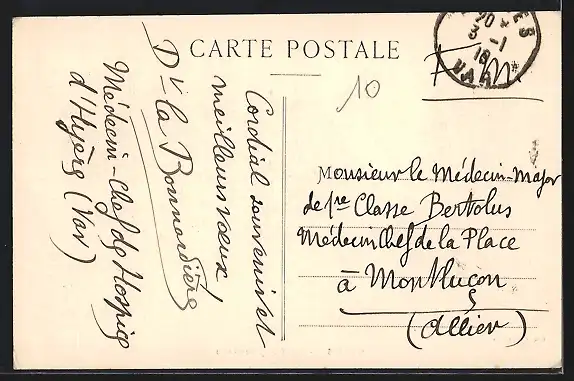 CARTE POSTALE
Cordial souvenir et
meilleurs vœux
Dr la Bonnardière
Médecin-Chef de Hospice
d'Hyères (Var)
20 *
3 -1
18
VAR
F M
10
Monsieur le Médecin-Major
de 1re Classe Bertolus
Médecin Chef de la Place
à Montluçon
(Allier)